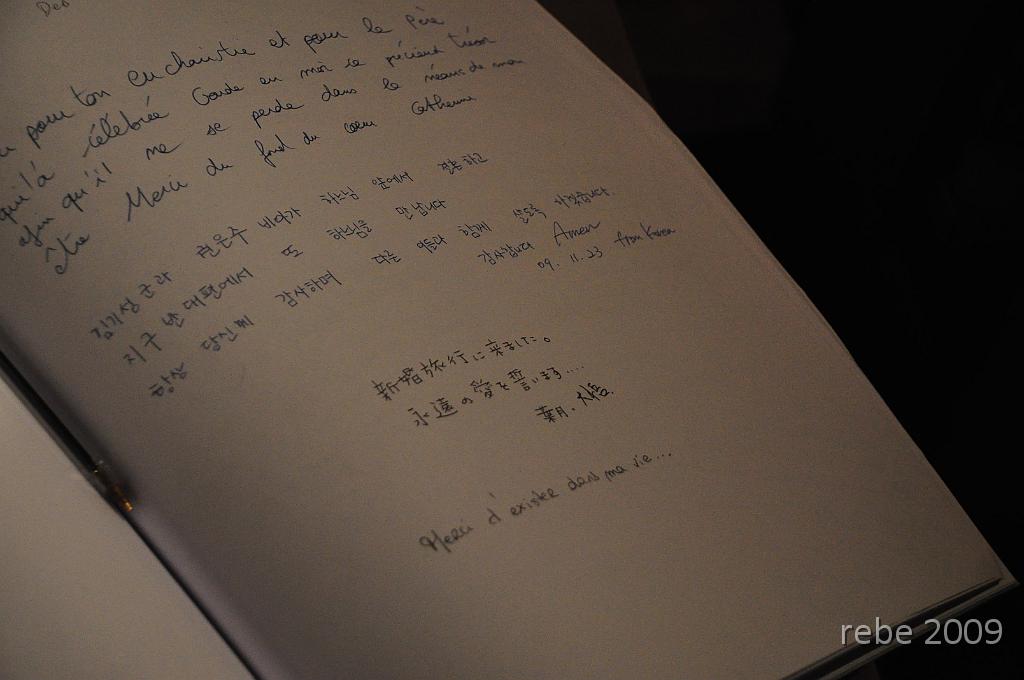 Deo
pour ton eucharistie et pour le Père
qu'il a célébrée Garde en moi ce précieux trésor
afin qu'il ne se perde dans le néant de mon
être Merci du fond du cœur Catherine
김기성 군과 권은주 비아가 하느님 앞에서 결혼하고
지구 반대편에서 또 하느님을 만납니다
항상 당신께 감사하며 다른 이들과 함께 살도록 하겠습니다.
감사합니다 Amen
09. 11. 23 from Korea
新婚旅行に来ました。
永遠の愛を誓います....
Merci d'exister dans ma vie...
rebe 2009